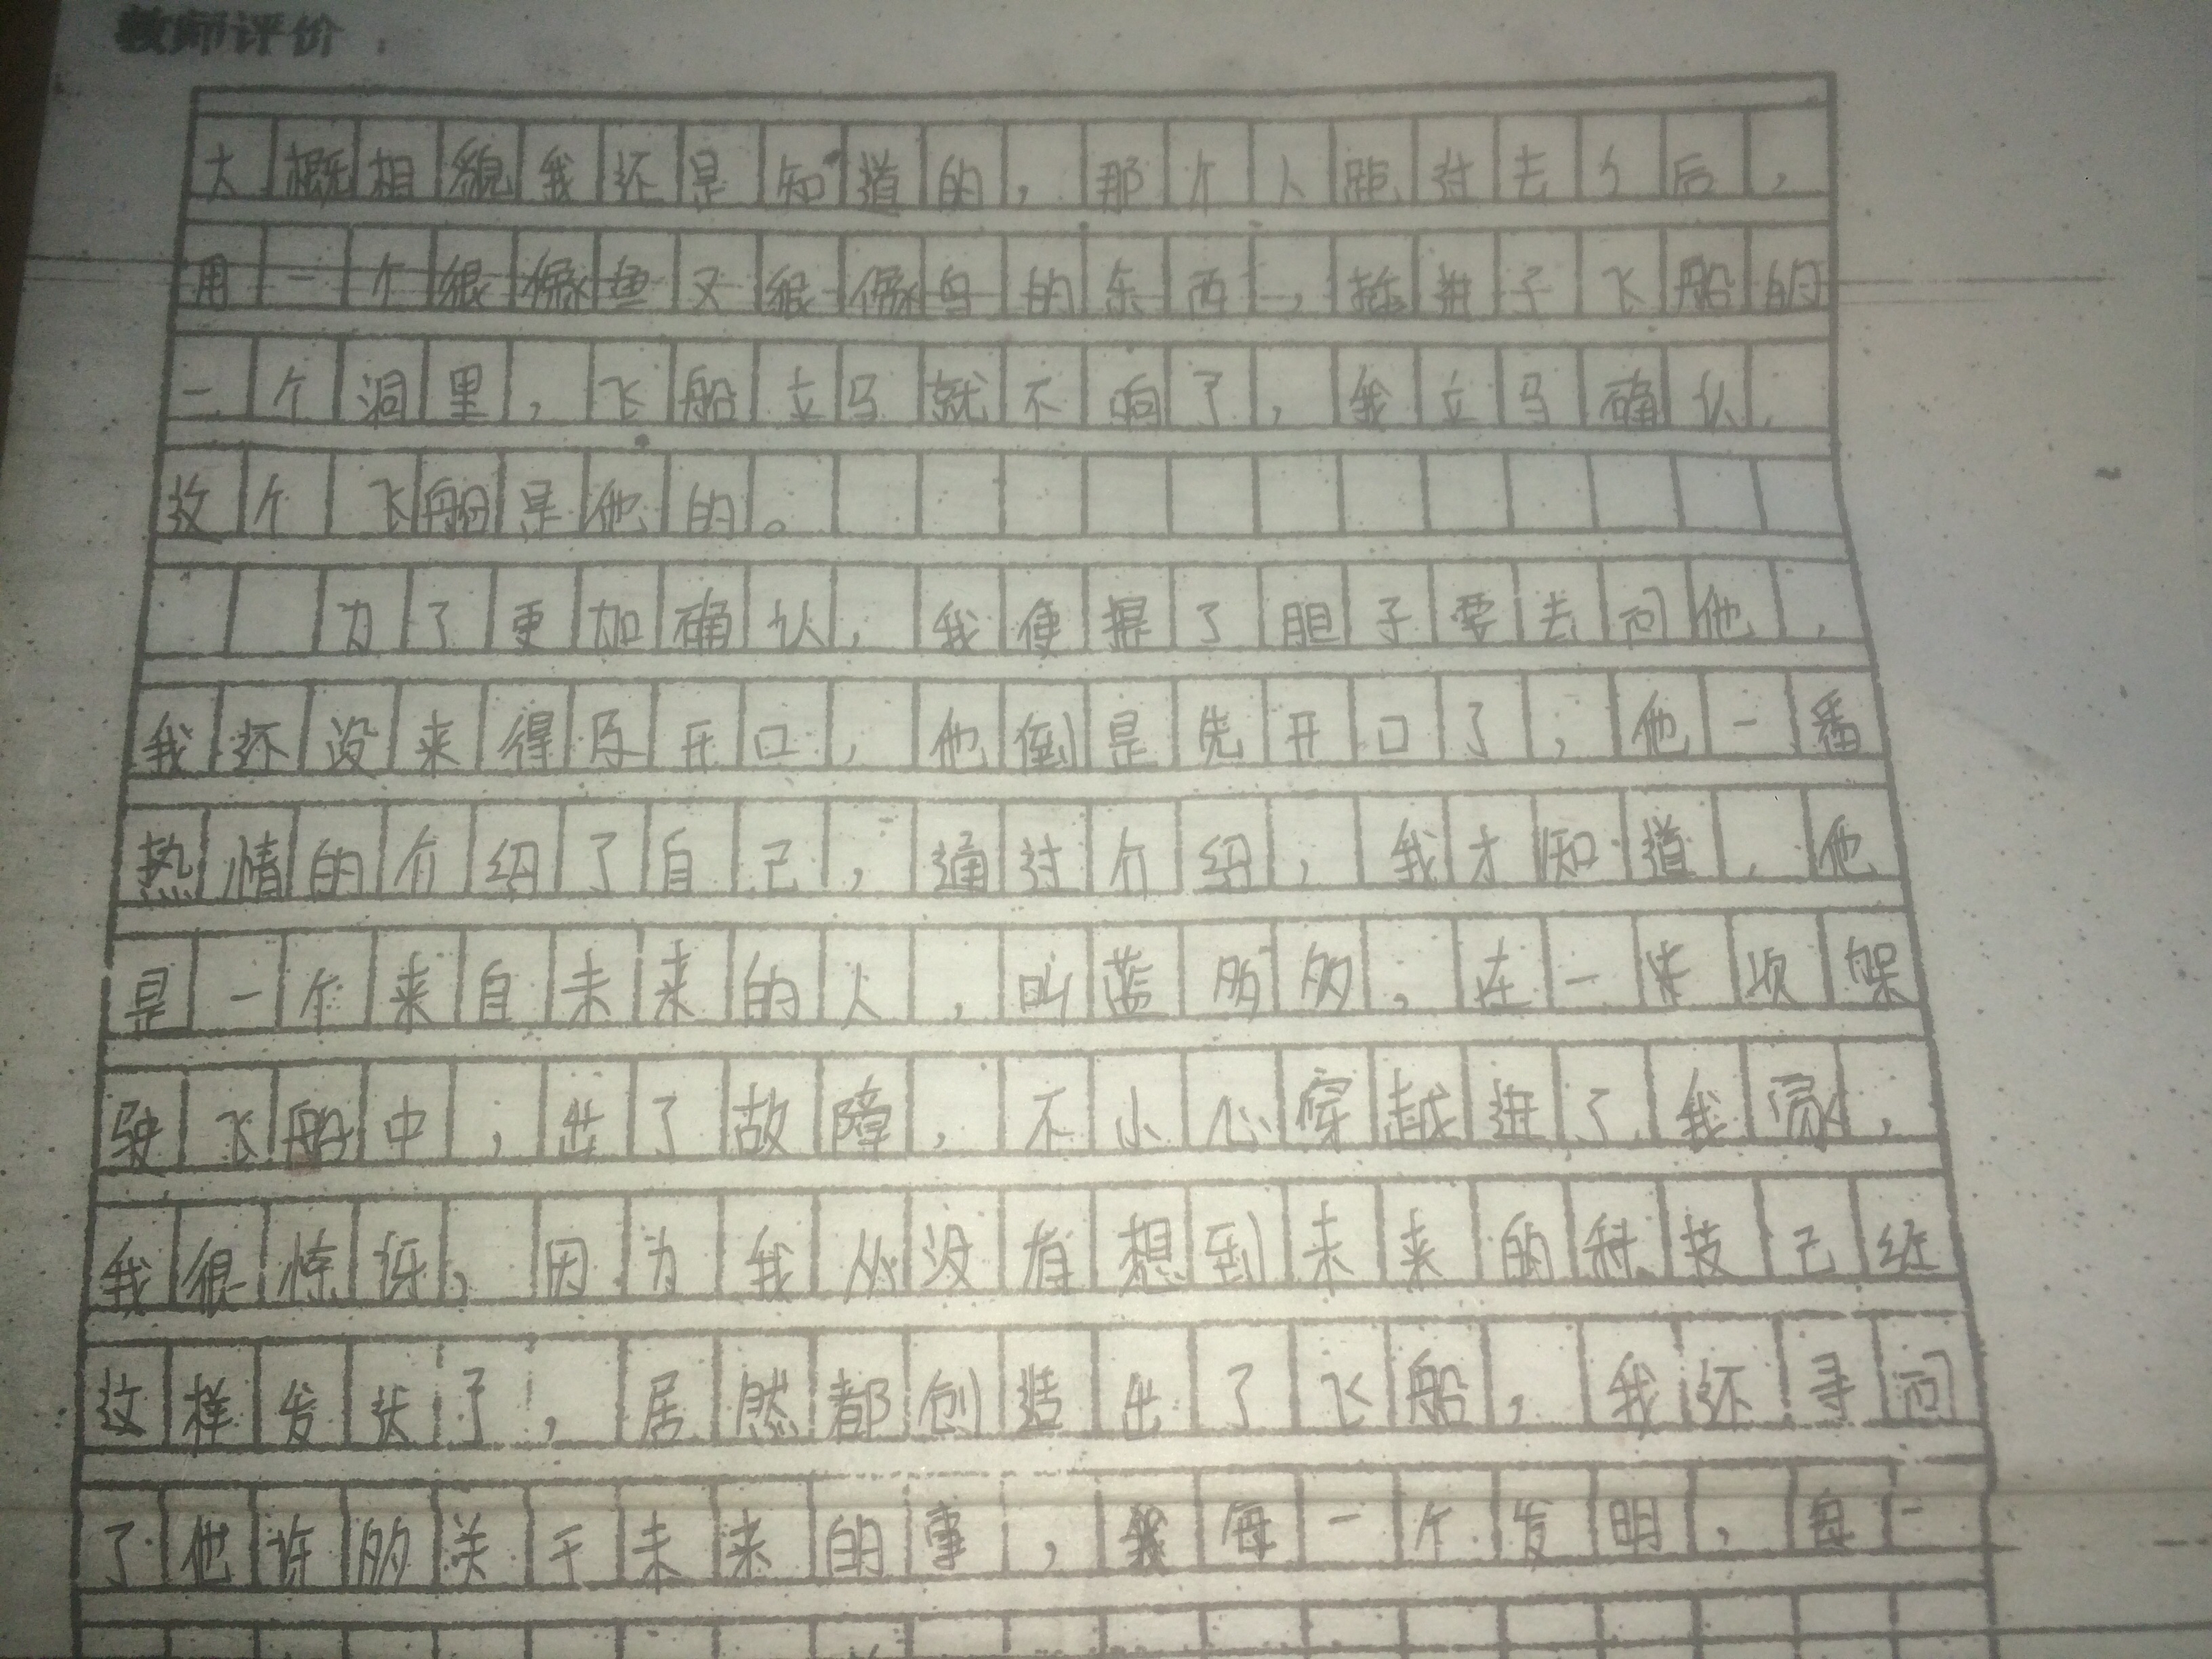 教师评价：
大概相貌我还是知道的，那个人距过去个后，
用一个很像鱼又很像鸟的东西，插进了飞船的
一个洞里，飞船立马就不响了，我立马确认，
这个飞船是他的。
为了更加确认，我便提了胆子要去问他，
我还没来得及开口，他倒是先开口了，他一番
热情的介绍了自己，通过介绍，我才知道，他
是一个来自未来的人，叫蓝多多，在一次架
驶飞船中，出了故障，不小心穿越进了我家，
我很惊讶，因为我从没有想到未来的科技已经
这样发达了，居然都创造出了飞船，我还寻问
了他许多关于未来的事，每一个发明，每一